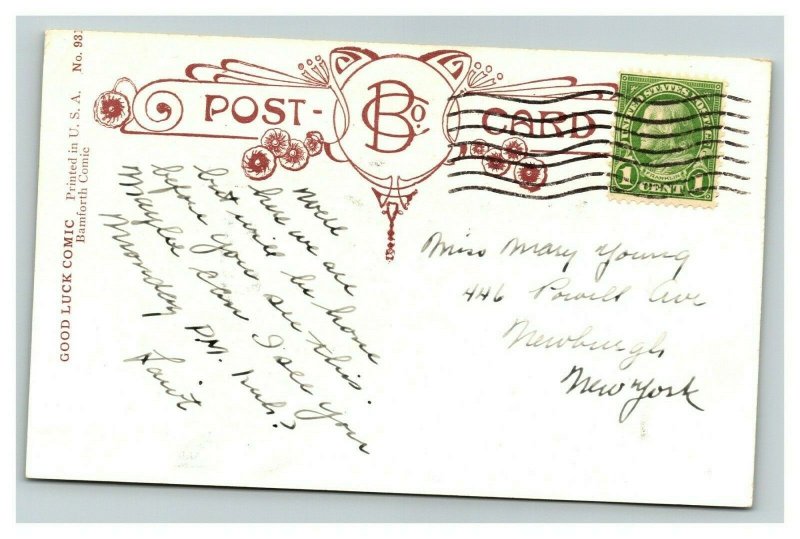 GOOD LUCK COMIC Printed in U. S. A. No. 931
Bamforth Comic
POST-CARD
B Co.
UNITED STATES POSTAGE
FRANKLIN
1 CENT 1
Well
here we are
but will be home
before you see this.
Maybe can I see you
Monday P.M. huh?
Miss Mary Young
446 Powell Ave
Newburgh
New York